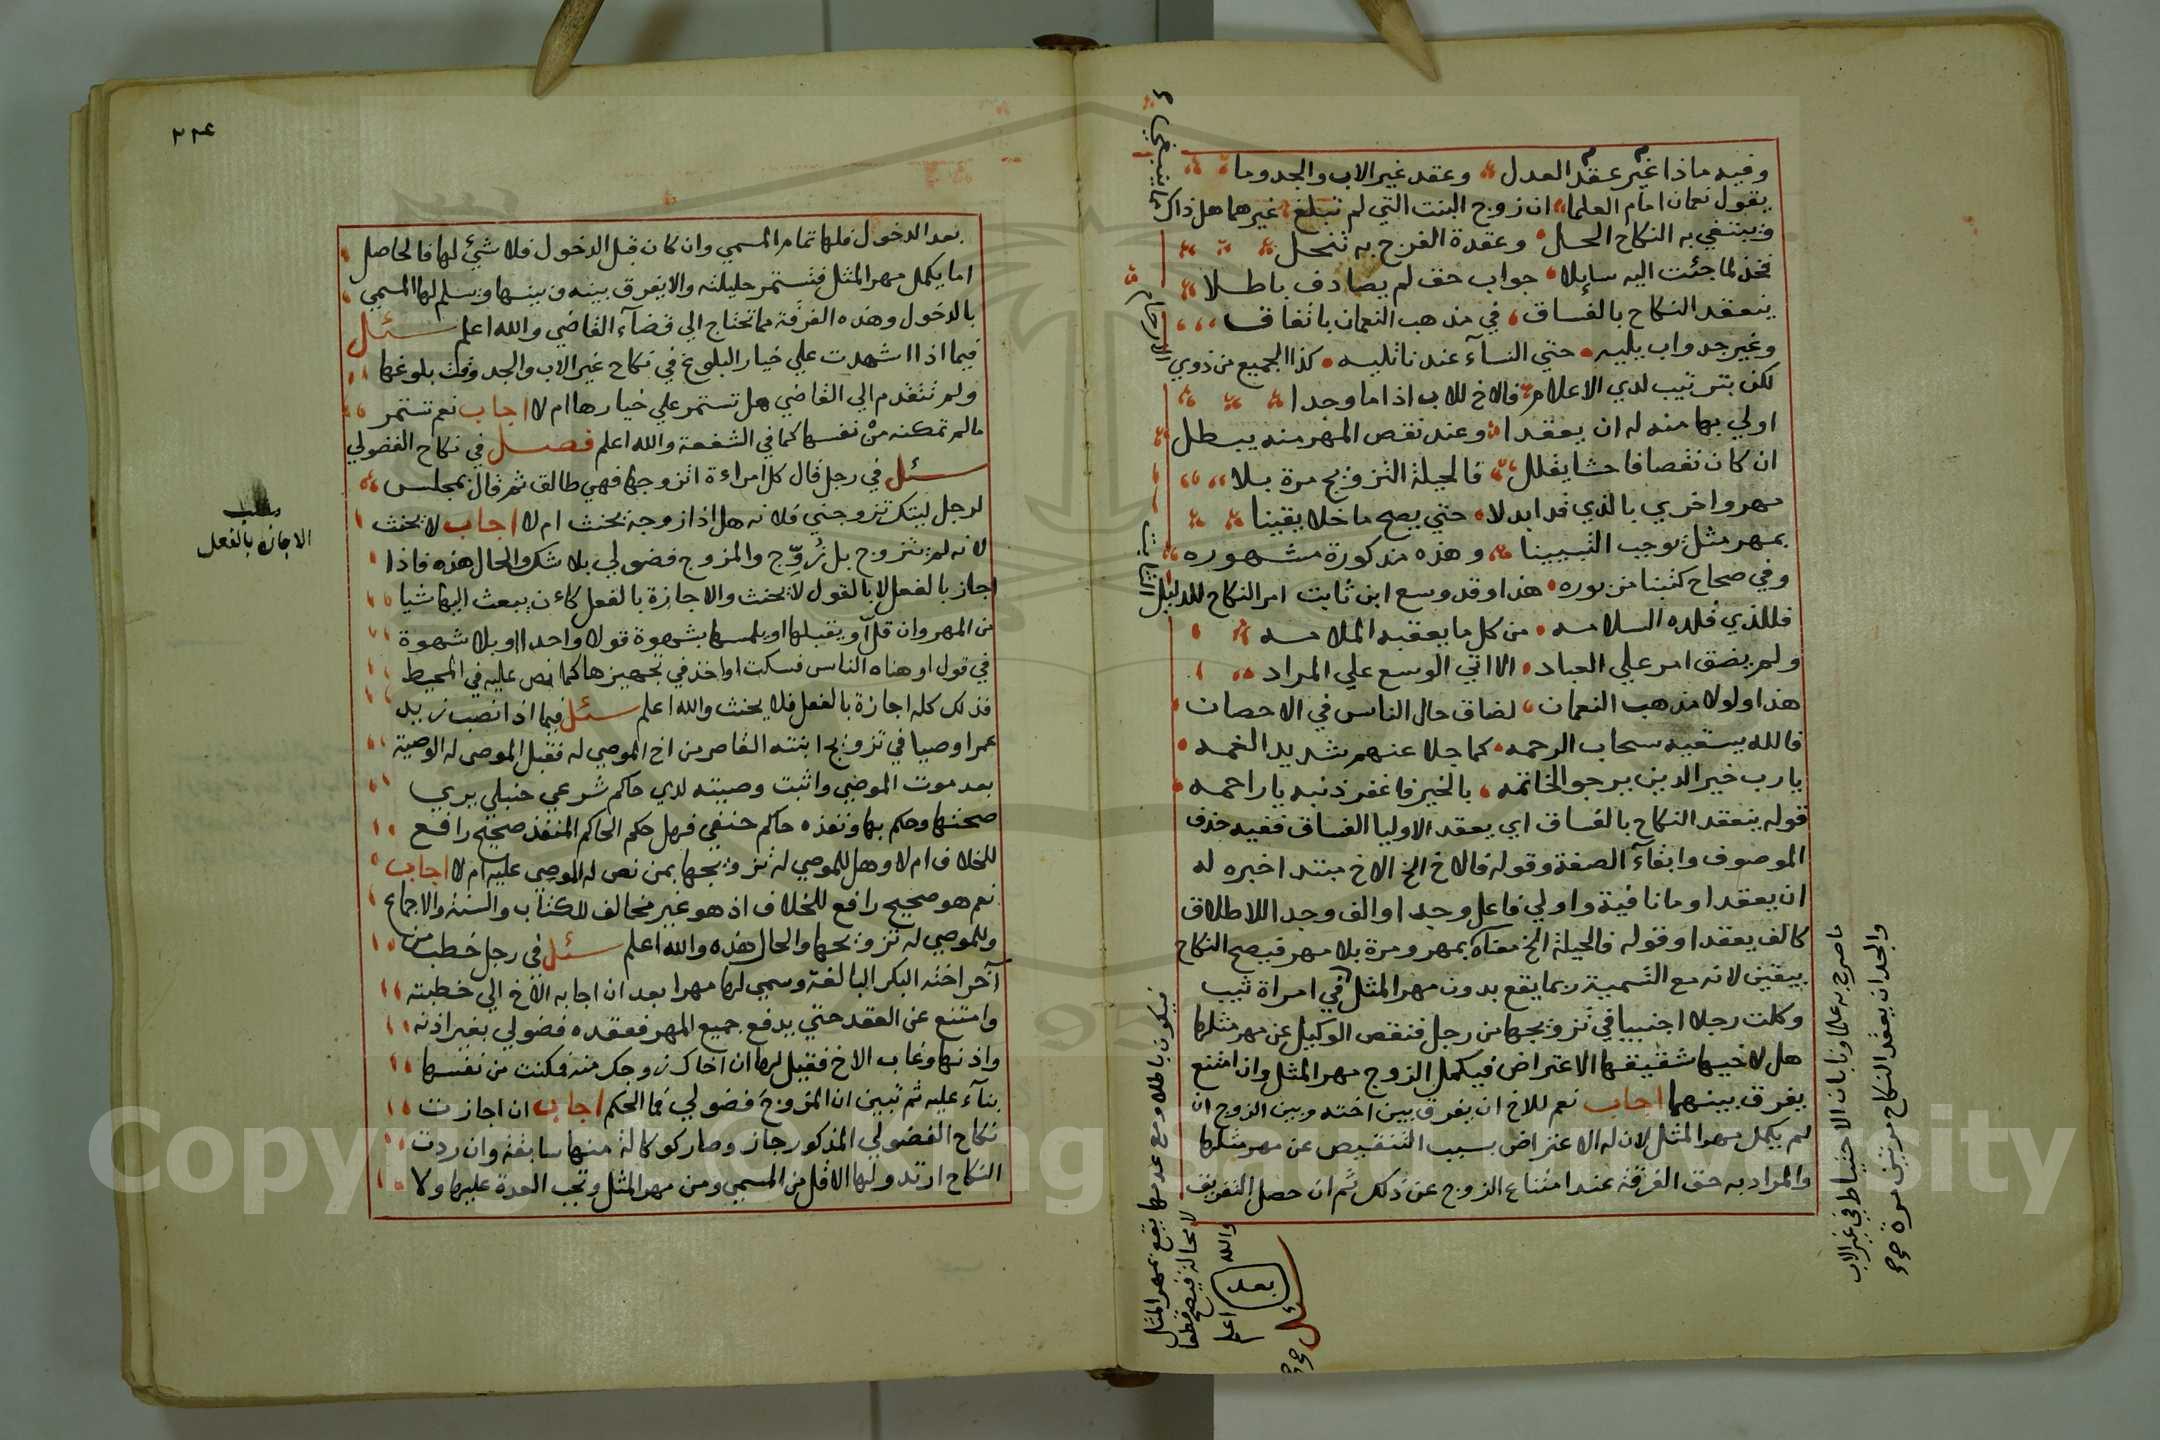 وفيه ماذا غير عقد العدل وعقد غير الاب والجد وما
يقول نعمان امام العلما ان زوج البنت التي لم تبلغ غيرهما هل ذاك مما ينبغي
وينتفي به النكاح الحل وعقدة الفرج به تنحل
فخذ لما جئت اليه سايلا جواب حق لم يصادف باطلا
ينعقد النكاح بالفساق في مذهب النعمان باتفاق
وغير جد واب يليه حتي النسآء عند نائليه كذا الجميع من ذوي الارحام
لكن بترتيب لدي الاعلام فالاخ للاب اذا ما وجدا
اولي بها منه له ان يعقدا وعند نقص المهر منه يبطل
ان كان نقصا فاحشا يقلل فالحيلة التزويج مرة بلا
مهر واخري بالذي قد ابدلا حتي يصح ما خلا يقينا
بمهر مثل يوجب التبيينا وهذه مذكورة مشهوره
وفي صحاح كتبنا مزبوره هذا وقد وسع ابن ثابت امر النكاح للدليل الثابت
فللذي قلده السلامه من كل ما يعقبه الملامه
ولم يضق امر علي العباد الا اتي الوسع علي المراد
هذا ولولا مذهب النعمان لضاق حال الناس في الاحصان
فالله يسقيه سحاب الرحمه كما جلا عنهم شديد الغمه
يا رب خير الدين يرجو الخاتمه بالخير فاغفر ذنبه يا راحمه
قوله ينعقد النكاح بالفساق اي يعقد الاوليا الفساق ففيه حذف
الموصوف وابقآء الصفة وقوله فالاخ الخ الاخ مبتدا خبره له
ان يعقدا وما نافية واولي فاعل وجد او الف وجدا للاطلاق
كالف يعقدا وقوله فالحيلة الخ معناه بمهر ومرة بلا مهر فيصح النكاح
بيقين لانه مع التسمية ربما يقع بدون مهر المثل في امراة ثيب
وكلت رجلا اجنبيا في تزويجها من رجل فنقص الوكيل عن مهر مثلها
هل لاخيها شقيقها الاعتراض فيكمل الزوج مهر المثل وان امتنع
يفرق بينهما اجاب نعم للاخ ان يفرق بين اخته وبين الزوج ان
لم يكمل مهر المثل لان له الاعتراض بسبب التنقيص عن مهر مثلها
والمراد به حق الفرقة عند امتناع الزوج عن ذلك ثم ان حصل التفريق
فيكون باطلا ومع عدمها يقع بمهر المثل
لا محالة فيصح قطعا
والله
اعلم
سئل
بعد
ما صرح به علماونا بان الاحتياط في غير الاب
والجد ان يعقد النكاح مرتين مرة
٢٢٤
بعد الدخول فلها تمام المسمي وان كان قبل الدخول فلا شيء لها فالحاصل
اما يكمل مهر المثل فتستمر حليلته والا يفرق بينه وبينها ويسلم لها المسمي
بالدخول وهذه الفرقة مما تحتاج الي قضآء القاضي والله اعلم سئل
فيما اذا اشهدت علي خيار البلوغ في نكاح غير الاب والجد وقت بلوغها
ولم تتقدم الي القاضي هل تستمر علي خيارها ام لا اجاب نعم تستمر
ما لم تمكنه من نفسها كما في الشفعة والله اعلم فصل في نكاح الفضولي
سئل في رجل قال كل امراءة اتزوجها فهي طالق ثم قال بمجلس
لرجل ليتك تزوجني فلانه هل اذا زوجه يحنث ام لا اجاب لا يحنث
لانه لم يتزوج بل زُوّج والمزوج فضولي بلا شك والحال هذه فاذا
اجاز بالفعل لا بالقول لا يحنث والاجازة بالفعل كاءن يبعث اليها شيا
من المهر وان قل او يقبلها او يلمسها بشهوة قولا واحدا او بلا شهوة
في قول او هناه الناس فسكت او اخذ في تجهيزها كما نص عليه في المحيط
فذلك كله اجازة بالفعل فلا يحنث والله اعلم سئل فيما اذا نصب زيد
عمرا وصيا في تزويج ابنته القاصر من اخ الموصي له فقبل الموصى له الوصية
بعد موت الموصي واثبت وصيته لدي حاكم شرعي حنبلي يري
صحتها وحكم بها ونفذه حاكم حنفي فهل حكم الحاكم المنفذ صحيح رافع
للخلاف ام لا وهل للموصي له تزويجها بمن نص له الموصي عليه ام لا اجاب
نعم هو صحيح رافع للخلاف اذ هو غير مخالف للكتاب والسنة والاجماع
وللموصي له تزويجها والحال هذه والله اعلم سئل في رجل خطب من
آخر اخته البكر البالغة وسمي لها مهرا بعد ان اجابه الاخ الي خطبته
وامتنع عن العقد حتي يدفع جميع المهر فعقده فضولي بغير اذنه
واذنها وغاب الاخ فقيل لها ان اخاك زوجك منه فمكنت من نفسها
بنآء عليه ثم تبين ان المزوج فضولي فما الحكم اجاب ان اجازت
نكاح الفضولي المذكور جاز وصار كوكالة منها سابقة وان ردت
النكاح ارتد ولها الاقل من المسمي ومن مهر المثل وتجب العدة عليها ولا
مطلب
الاجازه بالفعل